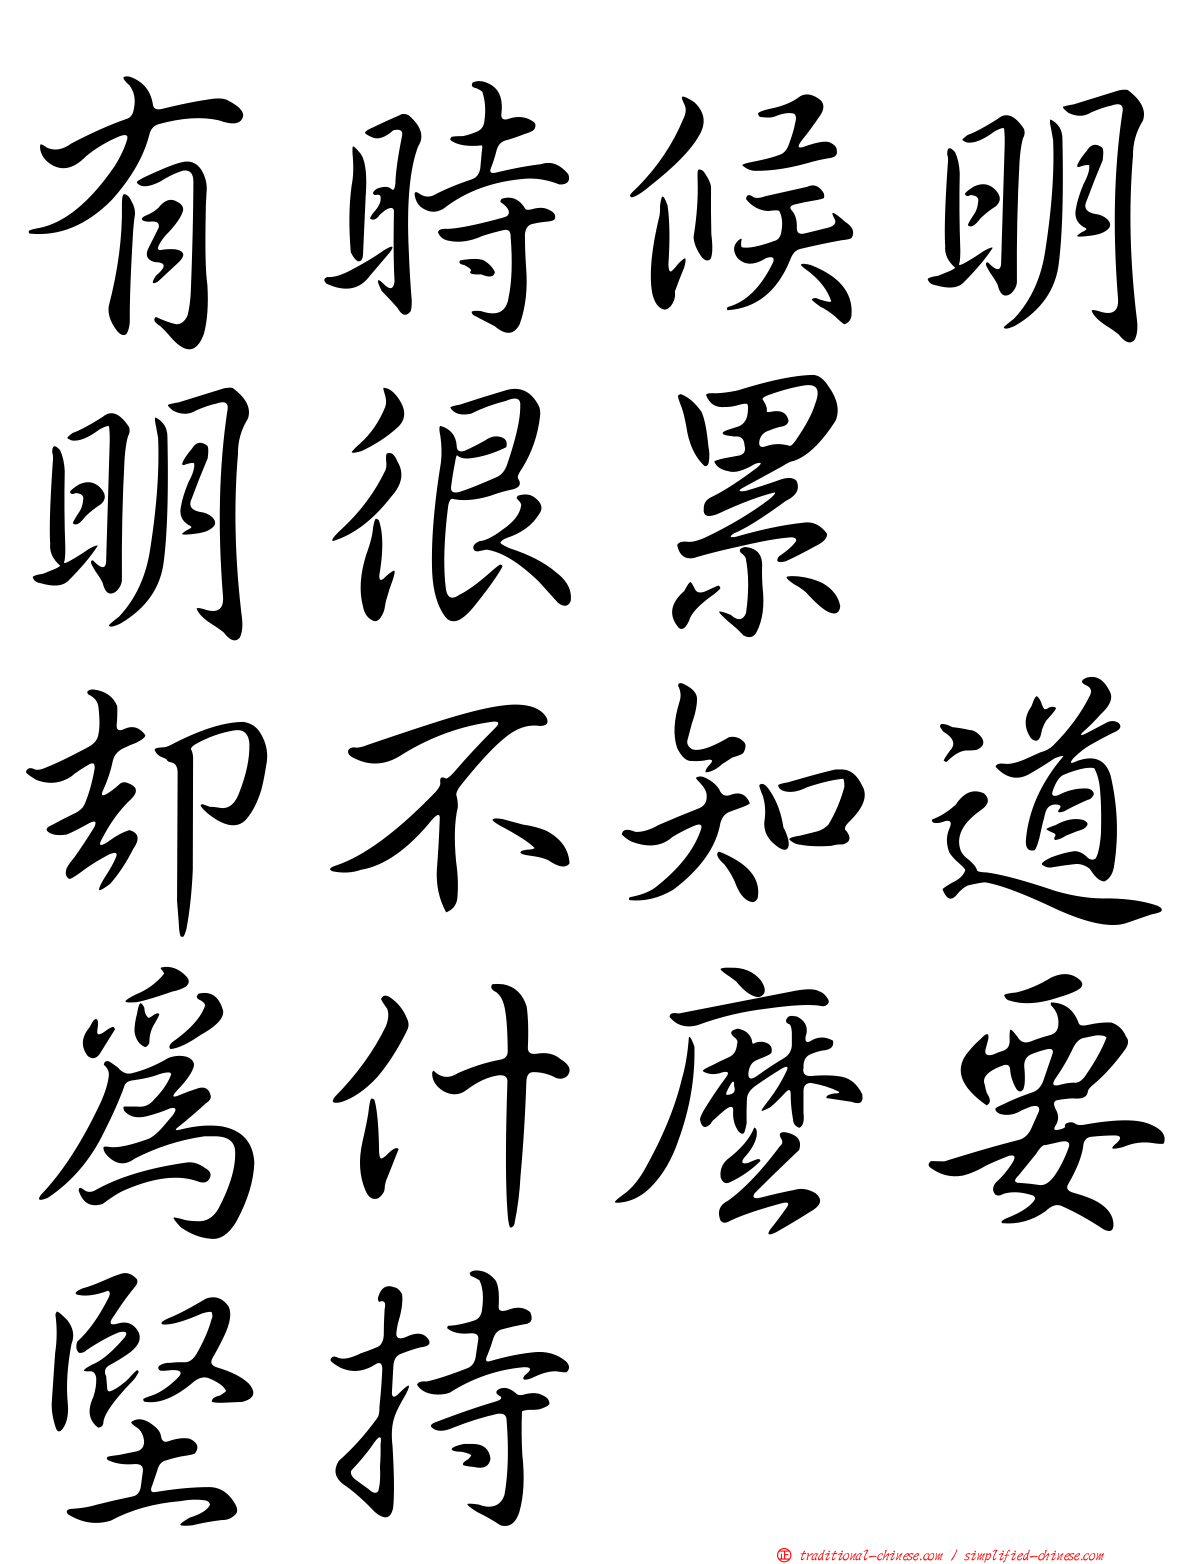 有時候明
明很累
却不知道
爲什麼要
堅持
正 traditional-chinese.com / simplified-chinese.com